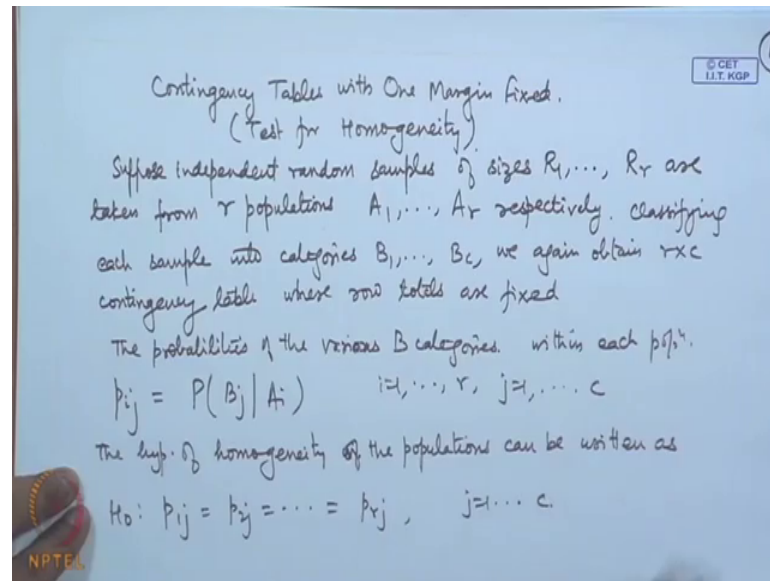 © CET
I.I.T. KGP
Contingency Tables with One Margin Fixed.
(Test for Homogeneity)
Suppose independent random samples of sizes R₁, ..., Rᵣ are
taken from r populations A₁, ..., Aᵣ respectively. Classifying
each sample into categories B₁, ..., B_c, we again obtain r×c
contingency table where row totals are fixed
The probabilities of the various B categories. within each popⁿ.
p_ij = P(B_j | A_i) i=1, ..., r, j=1, .... c
The hyp. of homogeneity of the populations can be written as
H₀: p_1j = p_2j = ···· = p_rj, j=1 ... c.
NPTEL